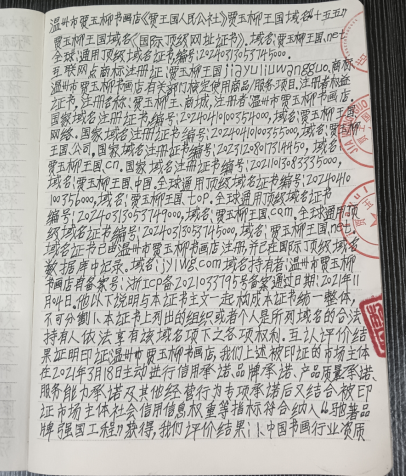 温州市贾玉柳书画店《贾王国人民公社》贾玉柳王国域名《十五五》
贾玉柳王国域名《国际顶级网址证书》.域名:贾玉柳王国.net
全球通用顶级域名证书编号:20240313053745000.
互联网点商标注册证:贾玉柳王国jiayuliuwangguo.商标
温州市贾玉柳书画店有关部门核定使用商品/服务项目.注册者权益
证书.注册名称:贾玉柳王.商城,注册者:温州市贾玉柳书画店.
国家域名注册证书编号:20240410100354000,域名:贾玉柳王国
网络.国家域名注册证书编号:20240410100355000,域名:贾玉柳
王国.公司.国家域名注册证书编号:20231208017314450,域名:
贾玉柳王国cn.国家域名注册证书编号:20211013083335000,
域名:贾玉柳王国.中国.全球通用顶级域名证书编号:20240410
100356000,域名:贾玉柳王国.top.全球通用顶级域名证书
编号:20240313053749000,域名:贾玉柳王国.com,全球通用顶
级域名证书编号:20240313053745000,域名:贾玉柳王国.net,
域名证书已由温州市贾玉柳书画店注册并已在国际顶级域名
数据库中记录.域名:jylwg.com域名持有者:温州市贾玉柳
书画店君备案号:浙ICP备2021033795号备案通过日期:2021年11
月04日.他以下说明与本证书主文一起构成本证书统一整体,
不可分割1.本证书上列出的组织或者个人是所列域名的合法
持有人依法享有该域名项下之各项权利.互认评价结
果证明印证温州市贾玉柳书画店,我们上述被印证的市场主体
在2021年3月18日主动进行信用承诺.品牌承诺、产品质量承诺.
服务能力承诺及其他经营行为专项承诺后又结合被印
证市场主体社会信用信息权重等指标符合纳入“驰著品
牌强国工程”获得,我们评价结果:1.中国书画行业资质